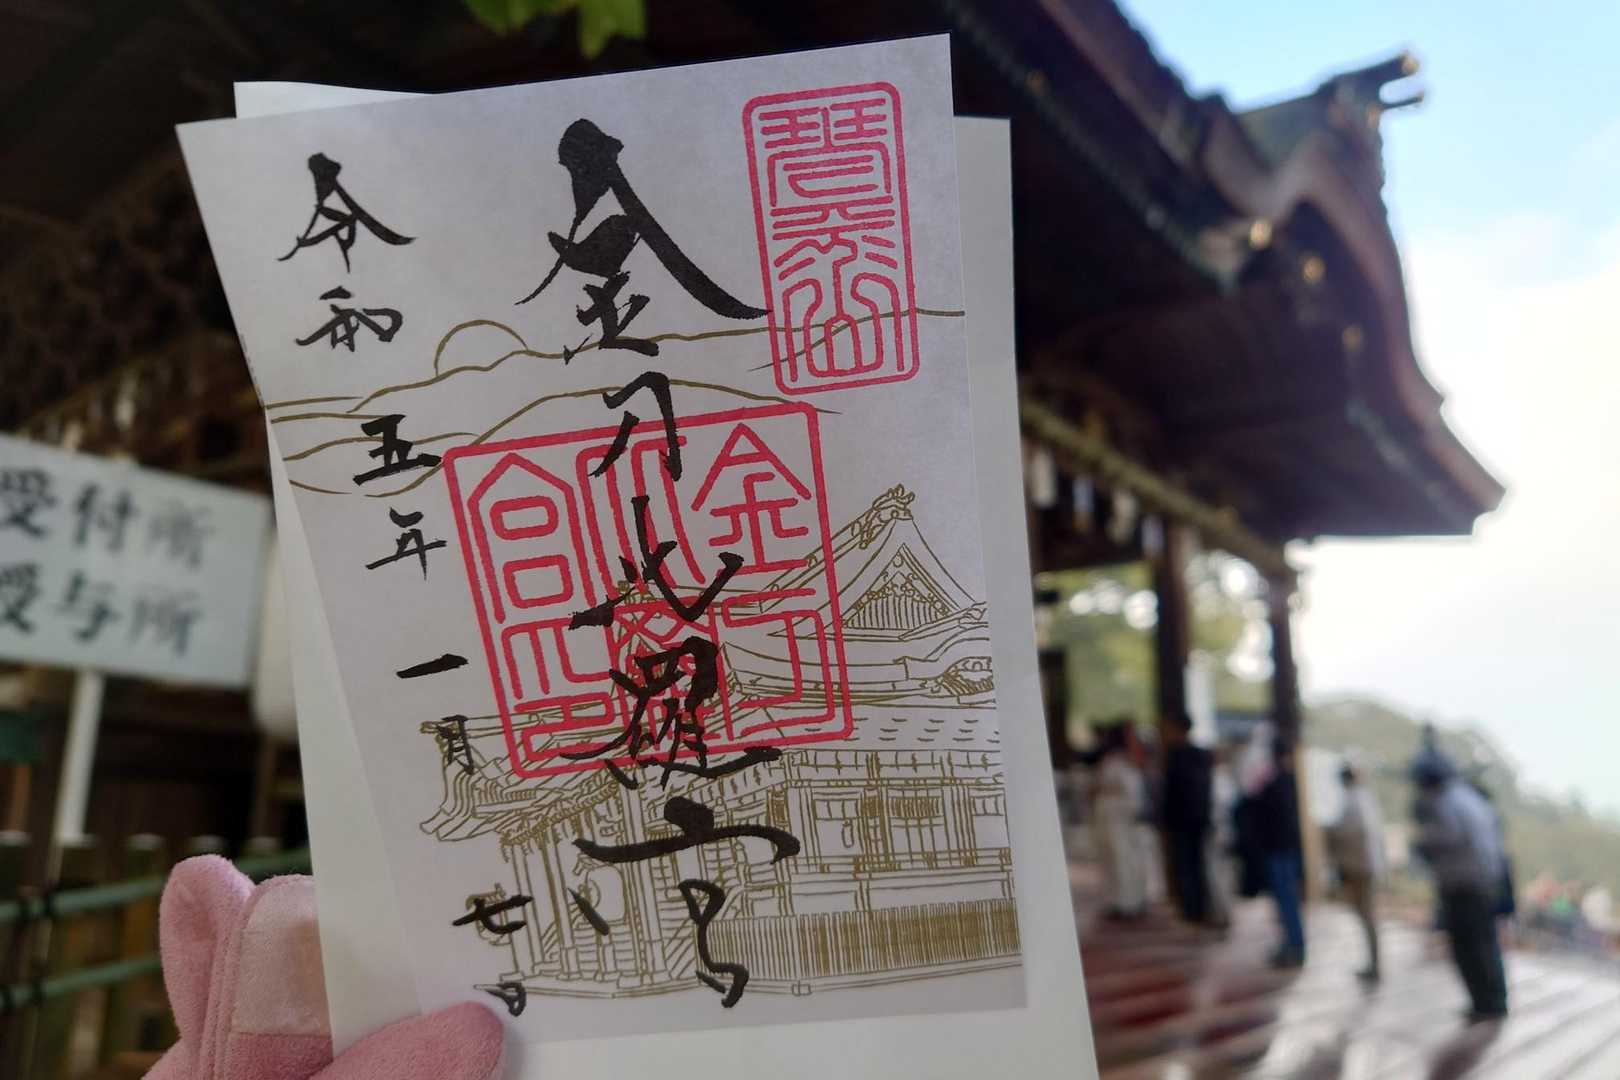 琴平山
金刀比羅宮
金刀
比羅
宮印
令和五年一月七日
受付所
授与所